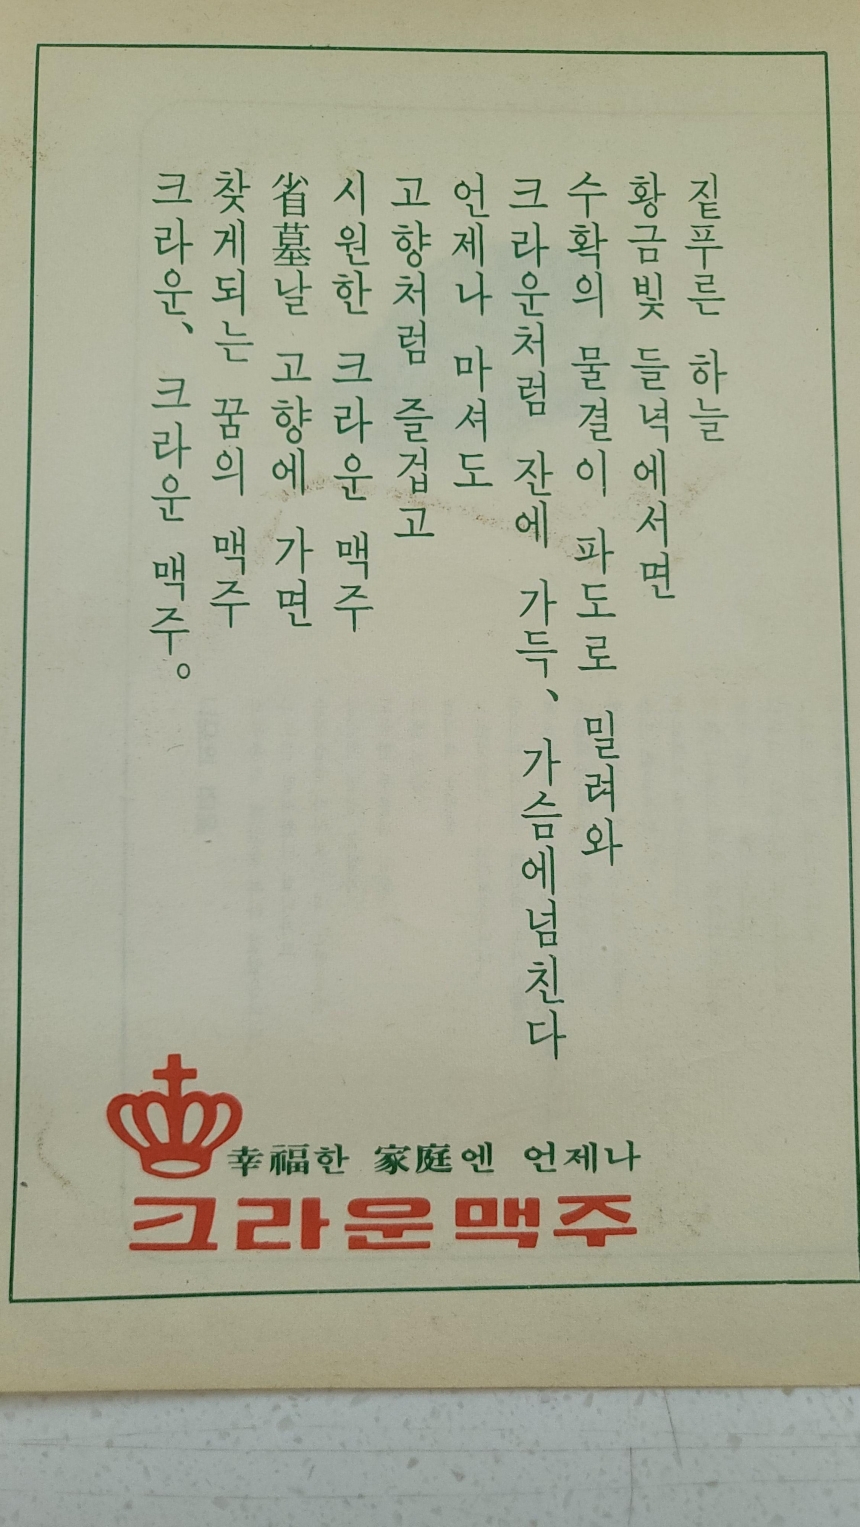 짙푸른 하늘
황금빛 들녘에서면
수확의 물결이 파도로 밀려와
크라운처럼 잔에 가득、 가슴에넘친다
언제나 마셔도
고향처럼 즐겁고
시원한 크라운 맥주
省墓날 고향에 가면
찾게되는 꿈의 맥주
크라운、 크라운 맥주。
幸福한 家庭엔 언제나
크라운맥주